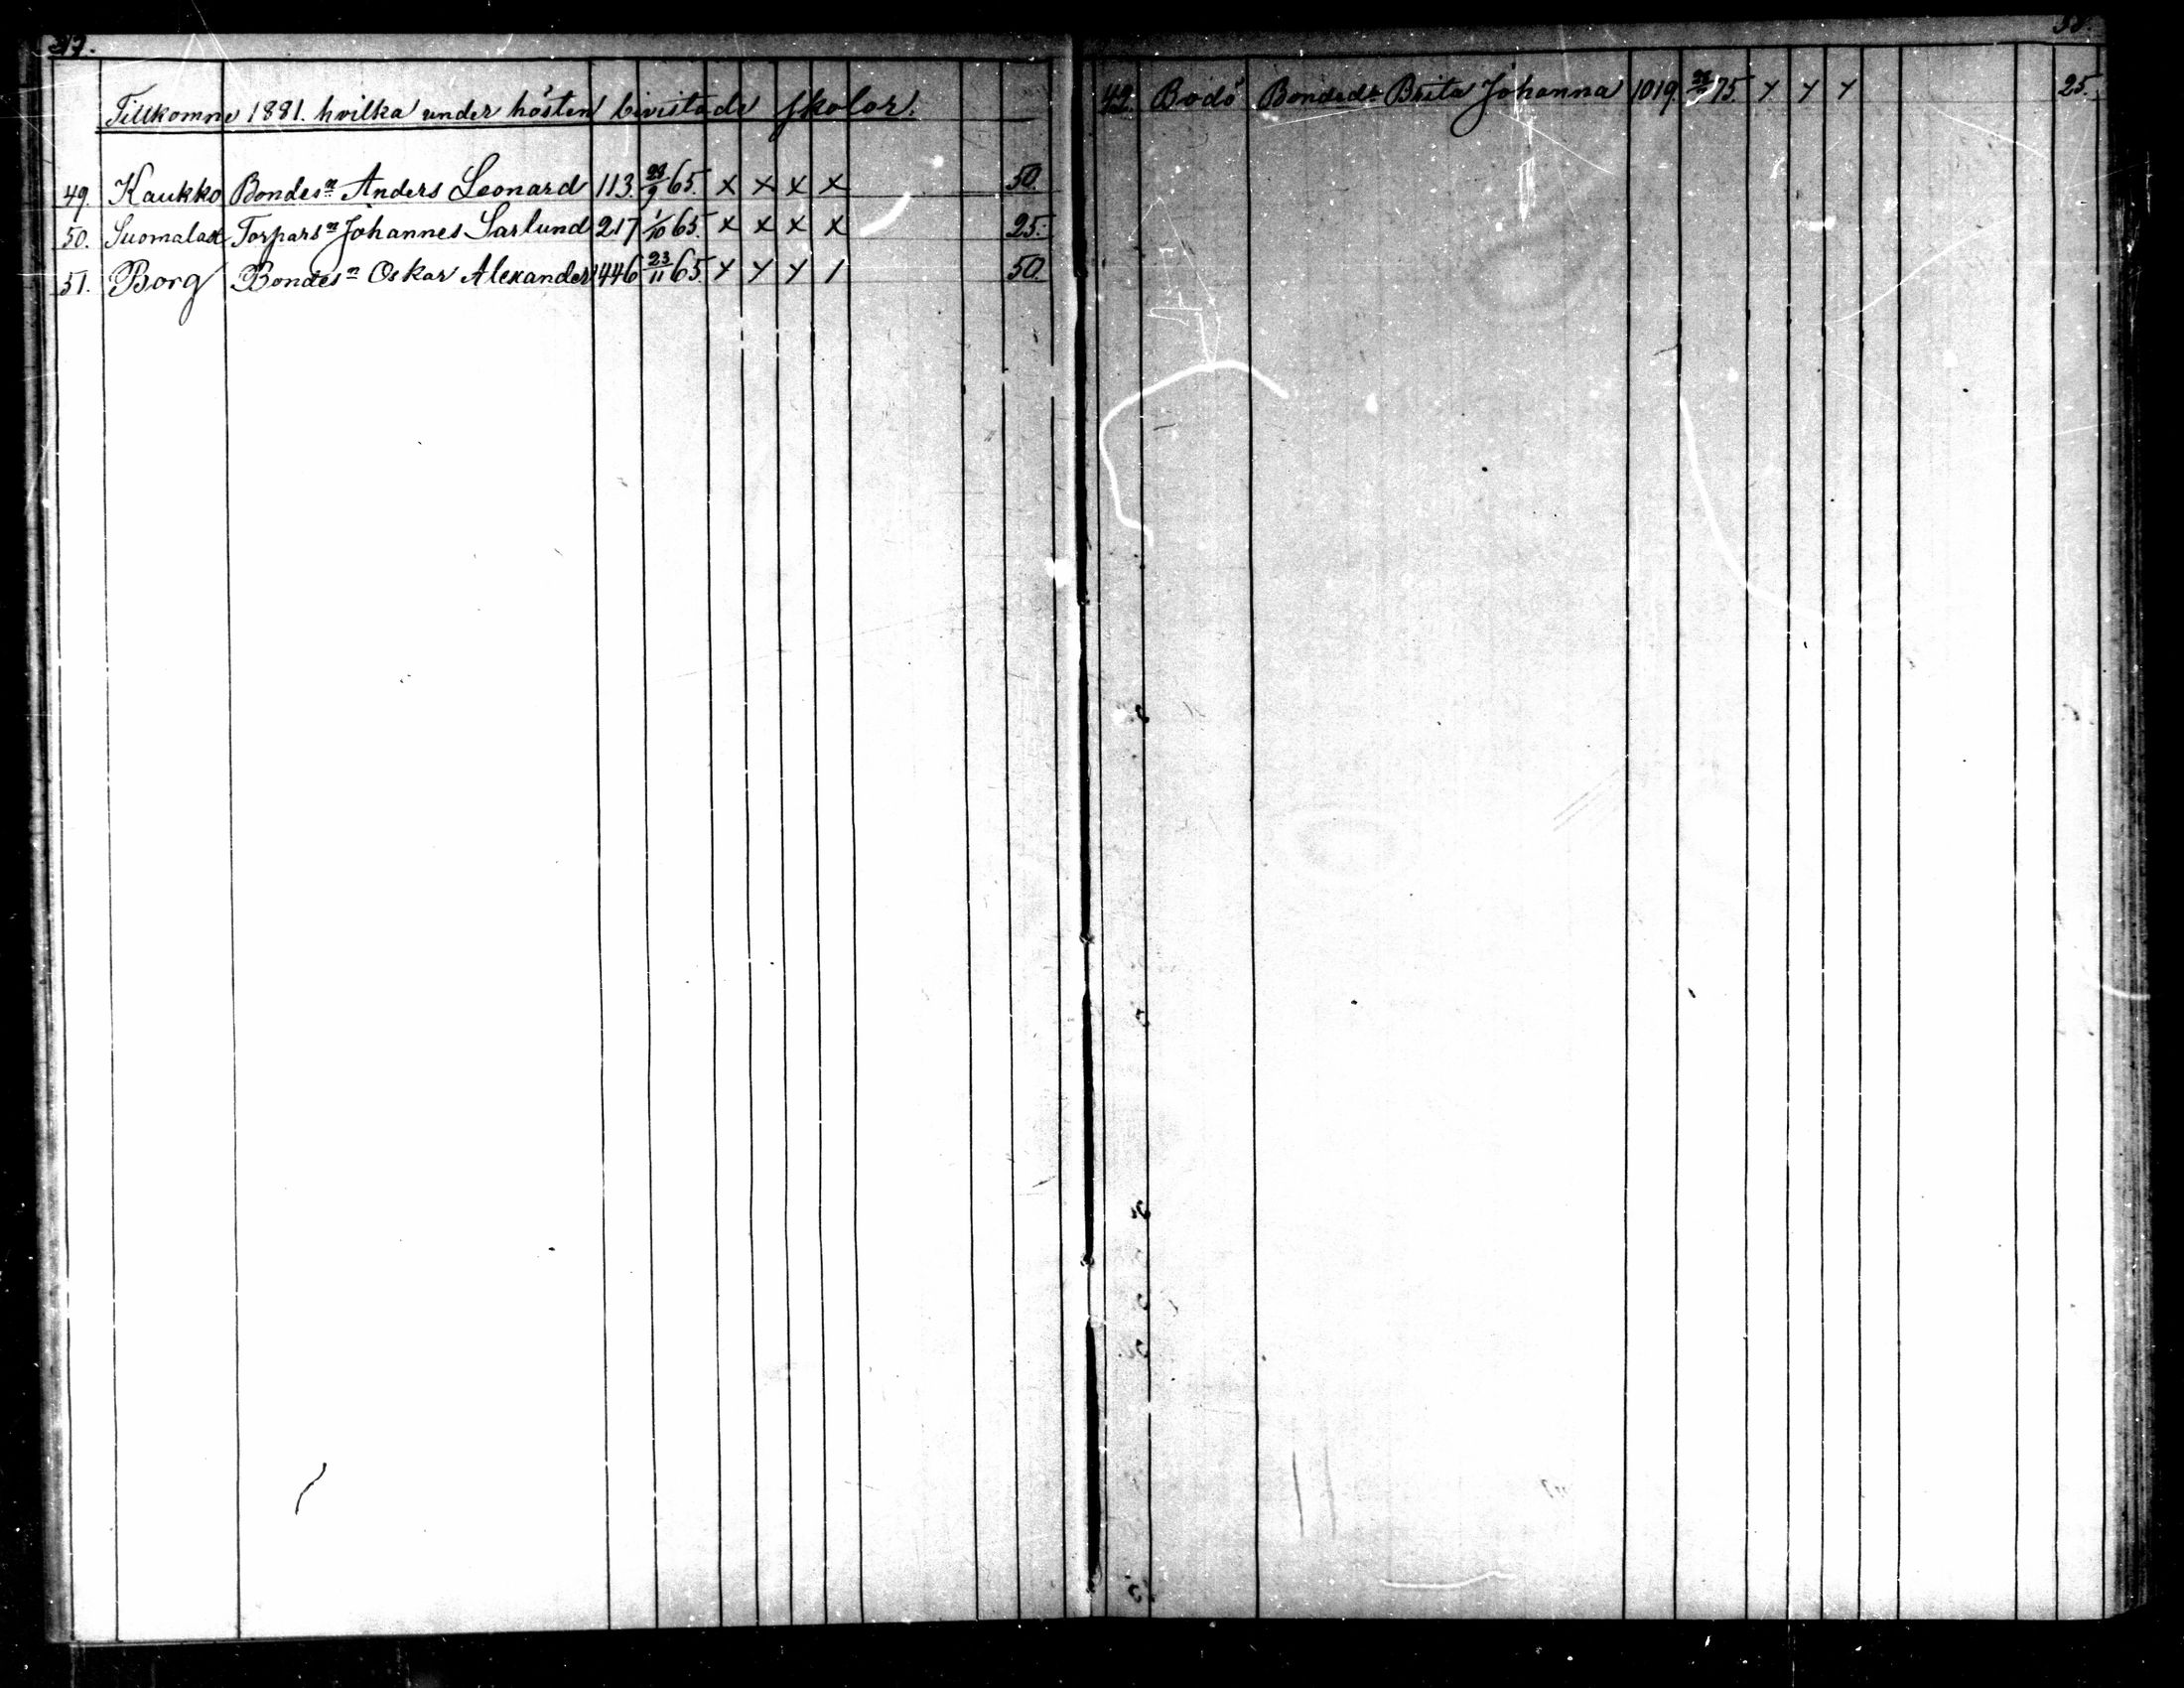 Tillkomne 1881. hvilka under hösten bivistade skolor.
49. Kaukko Bondesn Anders Leonard 113. 23/9 65. x x x x 50.
50. Suomalax Torparsn Johannes Sarlund 217 1/10 65. x x x x 25.
51. Borg Bondesn Oskar Alexander 446 23/11 65. x x x / 50.
Bodö Bonded. Brita Johanna 1019. 75. x x x 25.